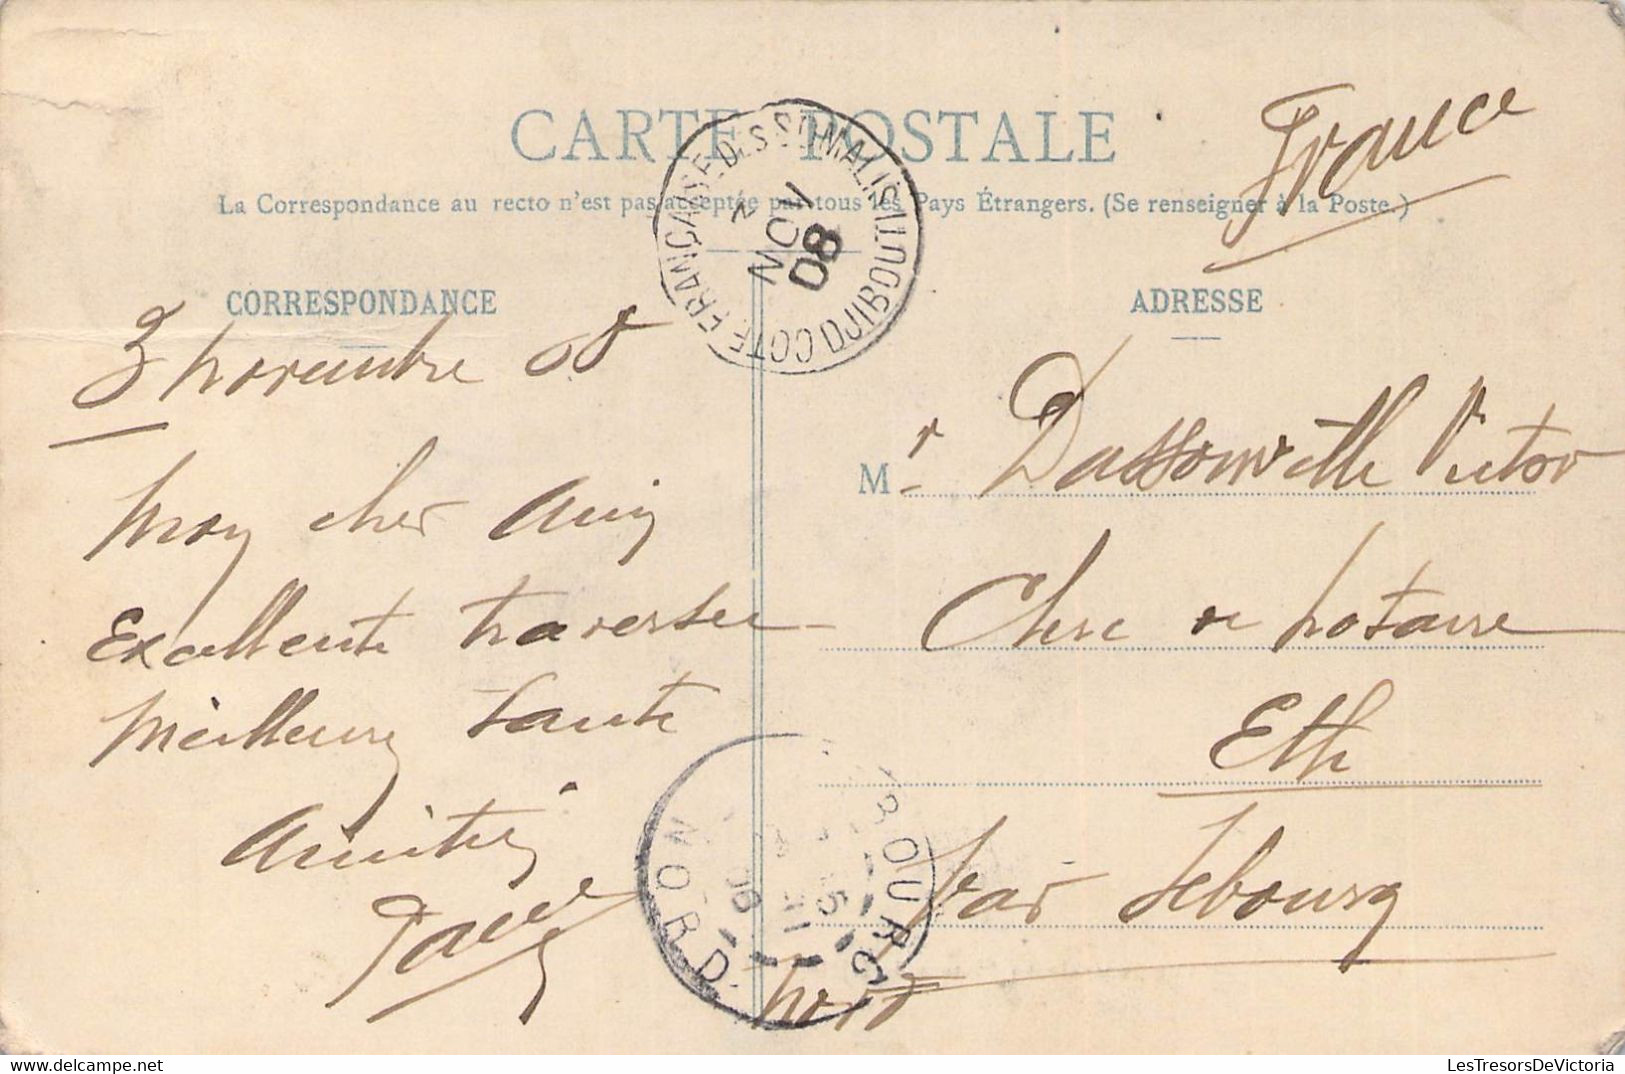 CARTE POSTALE
France
La Correspondance au recto n'est pas acceptée par tous les Pays Étrangers. (Se renseigner à la Poste.)
COTE FRANÇAISE DES SOMALIS DJIBOUTI
2
NOV
08
CORRESPONDANCE
3 novembre 08
Mon cher Ami
Excellente traversée
Meilleure santé
Amitié
ADRESSE
Mr Dassonville Victor
Clerc de notaire
Eth
par Sebourg
Nord
BOURG
NORD
LesTresorsDeVictoria